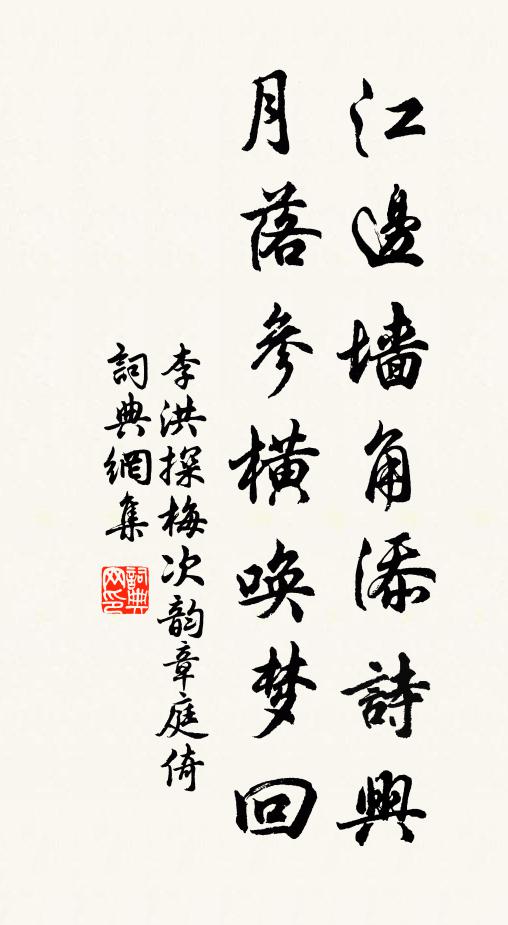 江邊墻角添詩興
月落參橫唤梦回
李洪探梅次韵章庭倚
詞典網集
詞典
网印